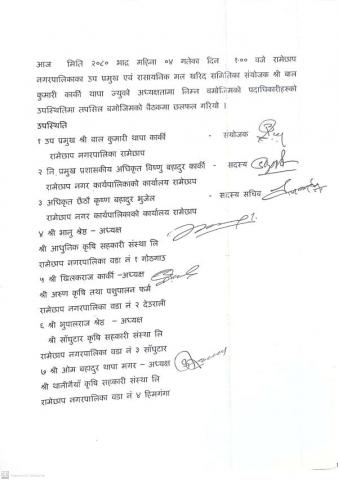 आज मिति २०८० भाद्र महिना ०४ गतेका दिन १:०० वजे रामेछाप
नगरपालिकाका उप प्रमुख एवं रासायनिक मल खरिद समितिका संयोजक श्री बाल
कुमारी कार्की थापा ज्युको अध्यक्षतामा निम्न बमोजिमको पदाधिकारीहरुको
उपस्थितिमा तपसिल बमोजिमको बैठकमा छलफल गरियो ।
उपस्थिति
१ उप प्रमुख श्री बाल कुमारी थापा कार्की - संयोजक
रामेछाप नगरपालिका रामेछाप
२ नि.प्रमुख प्रशासकीय अधिकृत विष्णु बहादुर कार्की - सदस्य
रामेछाप नगर कार्यपालिकाको कार्यालय रामेछाप
३ अधिकृत छैठौं कृष्ण बहादुर भुजेल - सदस्य सचिव
रामेछाप नगर कार्यपालिकाको कार्यालय रामेछाप
४ श्री भानु श्रेष्ठ - अध्यक्ष
श्री आधुनिक कृषि सहकारी संस्था लि
रामेछाप नगरपालिका वडा नं १ गोठगाउ
५ श्री खिलकराज कार्की -अध्यक्ष
श्री अरुण कृषि तथा पशुपालन फर्म
रामेछाप नगरपालिका वडा नं २ देउराली
६ श्री भुपालराज श्रेष्ठ - अध्यक्ष
श्री साँघुटार कृषि सहकारी संस्था लि
रामेछाप नगरपालिका वडा नं ३ साँघुटार
७ श्री ओम बहादुर थापा मगर - अध्यक्ष
श्री थानीगैयाँ कृषि सहकारी संस्था लि
रामेछाप नगरपालिका वडा नं ४ हिमगंगा